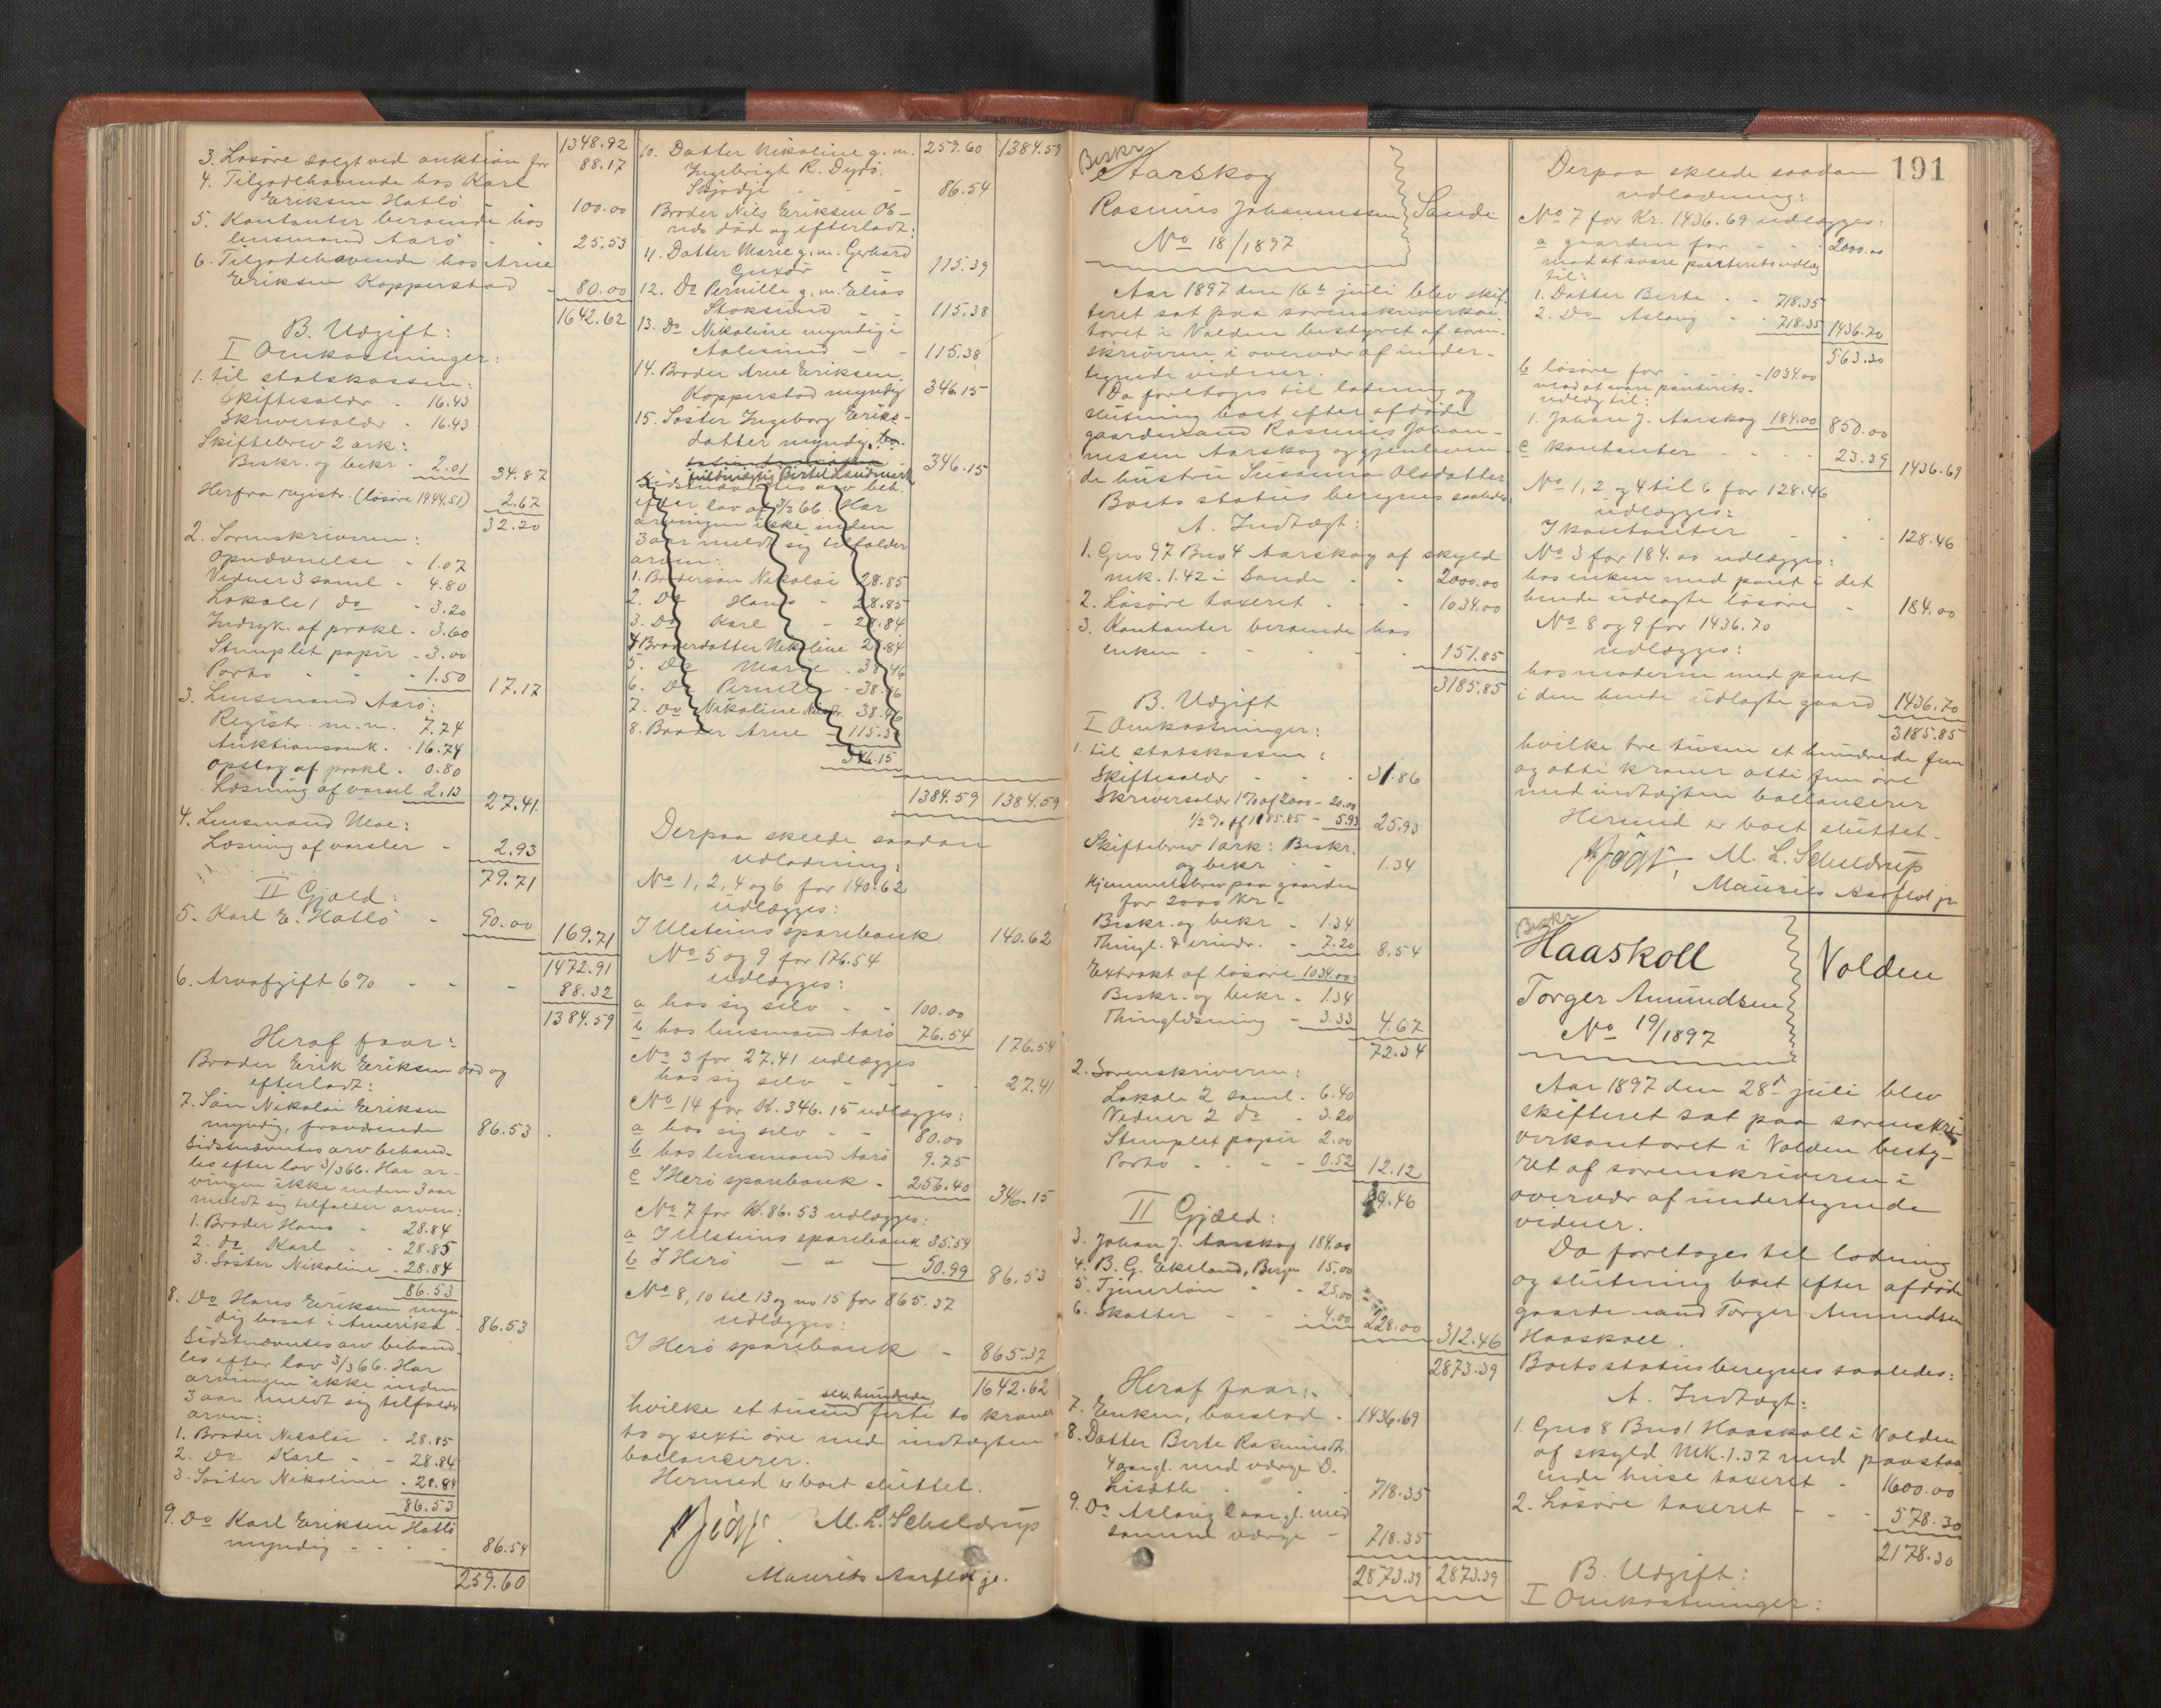 1348.92
3. Løsøre solgt ved auktion for 88.17
4. Tilgodehavende hos Karl
Eriksen Hatlø - 100.00
5. Kontanter beroende hos
lensmand Aarø - - 25.53
6. Tilgodehavende hos Arne
Eriksen Kopperstad - 80.00
1642.62
B. Udgift:
I Omkostninger:
1. til statskassen:
Skiftesalær - 16.43
Skriversalær - 16.43
Skiftebrev 2 ark:
Beskr. og bekr. - 2.01 34.87
Herfra registr. (løsøre 1444.51) 2.67
32.20
2. Sorenskriveren:
Opnævnelse - 1.07
Vidner 3 saml - 4.80
Lokale 1 do - 3.20
Indryk. af prokl. - 3.60
Stemplet papir - 3.00
Porto - - - 1.50 17.17
3. Lensmand Aarø:
Registr. m.m. 7.74
Auktionsomk. - 16.74
Opslag af prokl. - 0.80
Læsning af varsel 2.13 27.41
4. Lensmand Moe:
Læsning af varsler - 2.93
79.71
II Gjæld:
5. Karl E. Hatlø - 90.00 169.71
1472.91
6. Arveafgift 6% - - - 88.32
1384.59
Heraf faar:
Broder Erik Eriksen død og
efterladt:
7. Søn Nikolai Eriksen
myndig, fraværende 86.53
Sidstnævntes arv behand-
les efter lov 3/3 66. Har ar-
vingen ikke inden 3 aar
meldt sig tilfalder arven:
1. Broder Hans - 28.84
2. do Karl - - 28.85
3. Søster Nikoline - 28.84
86.53
8. Do Hans Eriksen myn-
dig bosat i Amerika - 86.53
Sidstnævntes arv behand-
les efter lov 3/3 66. Har
arvingen ikke inden
3 aar meldt sig tilfalder
arven:
1. Broder Nicolai - 28.85
2. Do Karl - - 28.84
3. Søster Nikoline - 28.84
86.53
9. Do Karl Eriksen Hatlø
myndig - - - - 86.54
259.60
10. Datter Nikoline g. m. 259.60 1384.59
Ingebrigt R. Dyrø.
- - 86.54
Broder Nils Eriksen
død og efterladt:
11. Datter Marie g. m. Gerhard
- - 115.39
12. Do Pernille g. m. Elias
Stoksund - - 115.38
13. Do Nikoline myndig i
Aalesund - - 115.38
14. Broder Arne Eriksen,
Kopperstad myndig 346.15
15. Søster Ingeborg Eriks-
datter myndig, bo-
346.15
Sidstnævntes arv beh.
efter lov af 3/3 66. Har
arvingen ikke inden
3 aar meldt sig tilfalder
arven:
1. Brodersøn Nikolai 28.85
2. Do Hans - 28.85
3. Do Karl - 28.84
4 Broderdatter Nikoline 28.84
5. Do Marie - 38.46
6. Do Pernille - 38.46
7. Do Nikoline 38.46
8. Broder Arne - 115.39
346.15
1384.59 1384.59
Derpaa skeede saadan
udlodning:
No 1, 2, 4 og 6 for 140.62
udlægges:
I Ulsteins sparebank 140.62
No 5 og 9 for 176.54
udlægges:
a hos sig selv - - 100.00
b hos lensmand Aarø 76.54 176.54
No 3 for 27.41 udlægges
hos sig selv - - - - 27.41
No 14 for K. 346.15 udlægges:
a hos sig selv - - 80.00
b hos lensmand Aarø 9.75
c I Herø sparebank - 256.40 346.15
No 7 for K. 86.53 udlægges:
a I Ulsteins sparebank 35.54
b I Herø - " - 50.99 86.53
No 8, 10 til 13 og no 15 for 865.37
udlægges:
I Herø sparebank - 865.37
1642.62
sex hundrede
hvilke et tusen førti to kroner
to og sexti øre med indtægten
ballancerer.
Hermed er boet sluttet.
M. L. Scheldrup
Maurits Aarflot jr.
191
Beskr
Aarskog
Rasmus Johannessen Sande
No 18/1897
Aar 1897 den 16de juli blev skif-
teret sat paa sorenskriverkon-
toret i Volden bestyret af soren-
skriveren i overvær af under-
tegnede vidner.
Da foretoges til lodning og
slutning boet efter afdøde
gaardmand Rasmus Johan-
nessen Aarskog og gjenleven-
de hustru Susanna Olsdatter
Boets status beregnes saaledes:
A. Indtægt:
1. Gno 97 Bno 4 Aarskog af skyld
mk. 1.42 i Sande - - 2000.00
2. Løsøre taxeret - - - 1034.00
3. Kontanter beroende hos
enken - - - - - 151.85
3185.85
B. Udgift
I Omkostninger:
1. til statskassen:
Skiftesalær - - - 31.86
Skriversalær 1% af 2000 - 20.00
1/2 % af 1185.85 - 5.93 25.93
Skiftebrev 1 ark: Beskr.
og bekr - - 1.34
Hjemmelsbrev paa gaarden
for 2000 kr -
Beskr. og bekr - 1.34
Thingl. & erindr. - 7.20 8.54
Extrakt af løsøre 1034.00:
Beskr. og bekr - 1.34
Thinglæsning - 3.33 4.67
72.34
2. Sorenskriveren:
Lokale 2 saml. 6.40
Vidner 2 do - 3.20
Stemplet papir 2.00
Porto - - - - 0.52 12.12
84.46
II Gjæld:
3. Johan J. Aarskog 184.00
4. B. G. Ekeland, Bergen 15.00
5. Tjenerløn - - 25.00
6. Skatter - - 4.00 228.00 312.46
2873.39
Heraf faar:
7. Enken, boeslod - 1436.69
8. Datter Berte Rasmusdtr.
4 aar gl. med værge O.
718.35
9. Do Aslaug 2 aar gl. med
samme værge - 718.35
2873.39 2873.39
Derpaa skeede saadan
udlodning:
No 7 for Kr. 1436.69 udlægges:
a gaarden for - - - 2000.00
mod at svare panteretsudlæg
til:
1. Datter Berte - - 718.35
2. Do Aslaug - - 718.35 1436.70
563.30
b løsøre for - - - 1034.00
mod at svare panterets-
udlæg til:
1. Johan J. Aarskog 184.00 850.00
c kontanter - - - - 23.39 1436.69
No 1, 2 og 4 til 6 for 128.46
udlægges:
I kontanter - - - 128.46
No 3 for 184.00 udlægges:
hos enken med pant i det
hende udlagte løsøre - 184.00
No 8 og 9 for 1436.70
udlægges:
hos moderen med pant
i den hende udlagte gaard 1436.70
3185.85
hvilke tre tusen et hundrede fem
og otti kroner otti fem øre
med indtægten ballancerer
Hermed er boet sluttet.
M. L. Scheldrup
Maurits Aarflot jr.
Beskr
Haaskoll Volden
Torger Amundsen
No 19/1897
Aar 1897 den 28de juli blev
skifteret sat paa sorenskri-
verkontoret i Volden besty-
ret af sorenskriveren i
overvær af undertegnede
vidner.
Da foretoges til lodning
og slutning boet efter afdøde
gaardmand Torger Amundsen
Haaskoll.
Boets status beregnes saaledes:
A. Indtægt:
1. Gno 8 Bno 1 Haaskoll i Volden
af skyld Mk. 1.37 med paastaa-
ende huse taxeret - 1600.00
2. Løsøre taxeret - - - 578.30
2178.30
B. Udgift:
I Omkostninger: